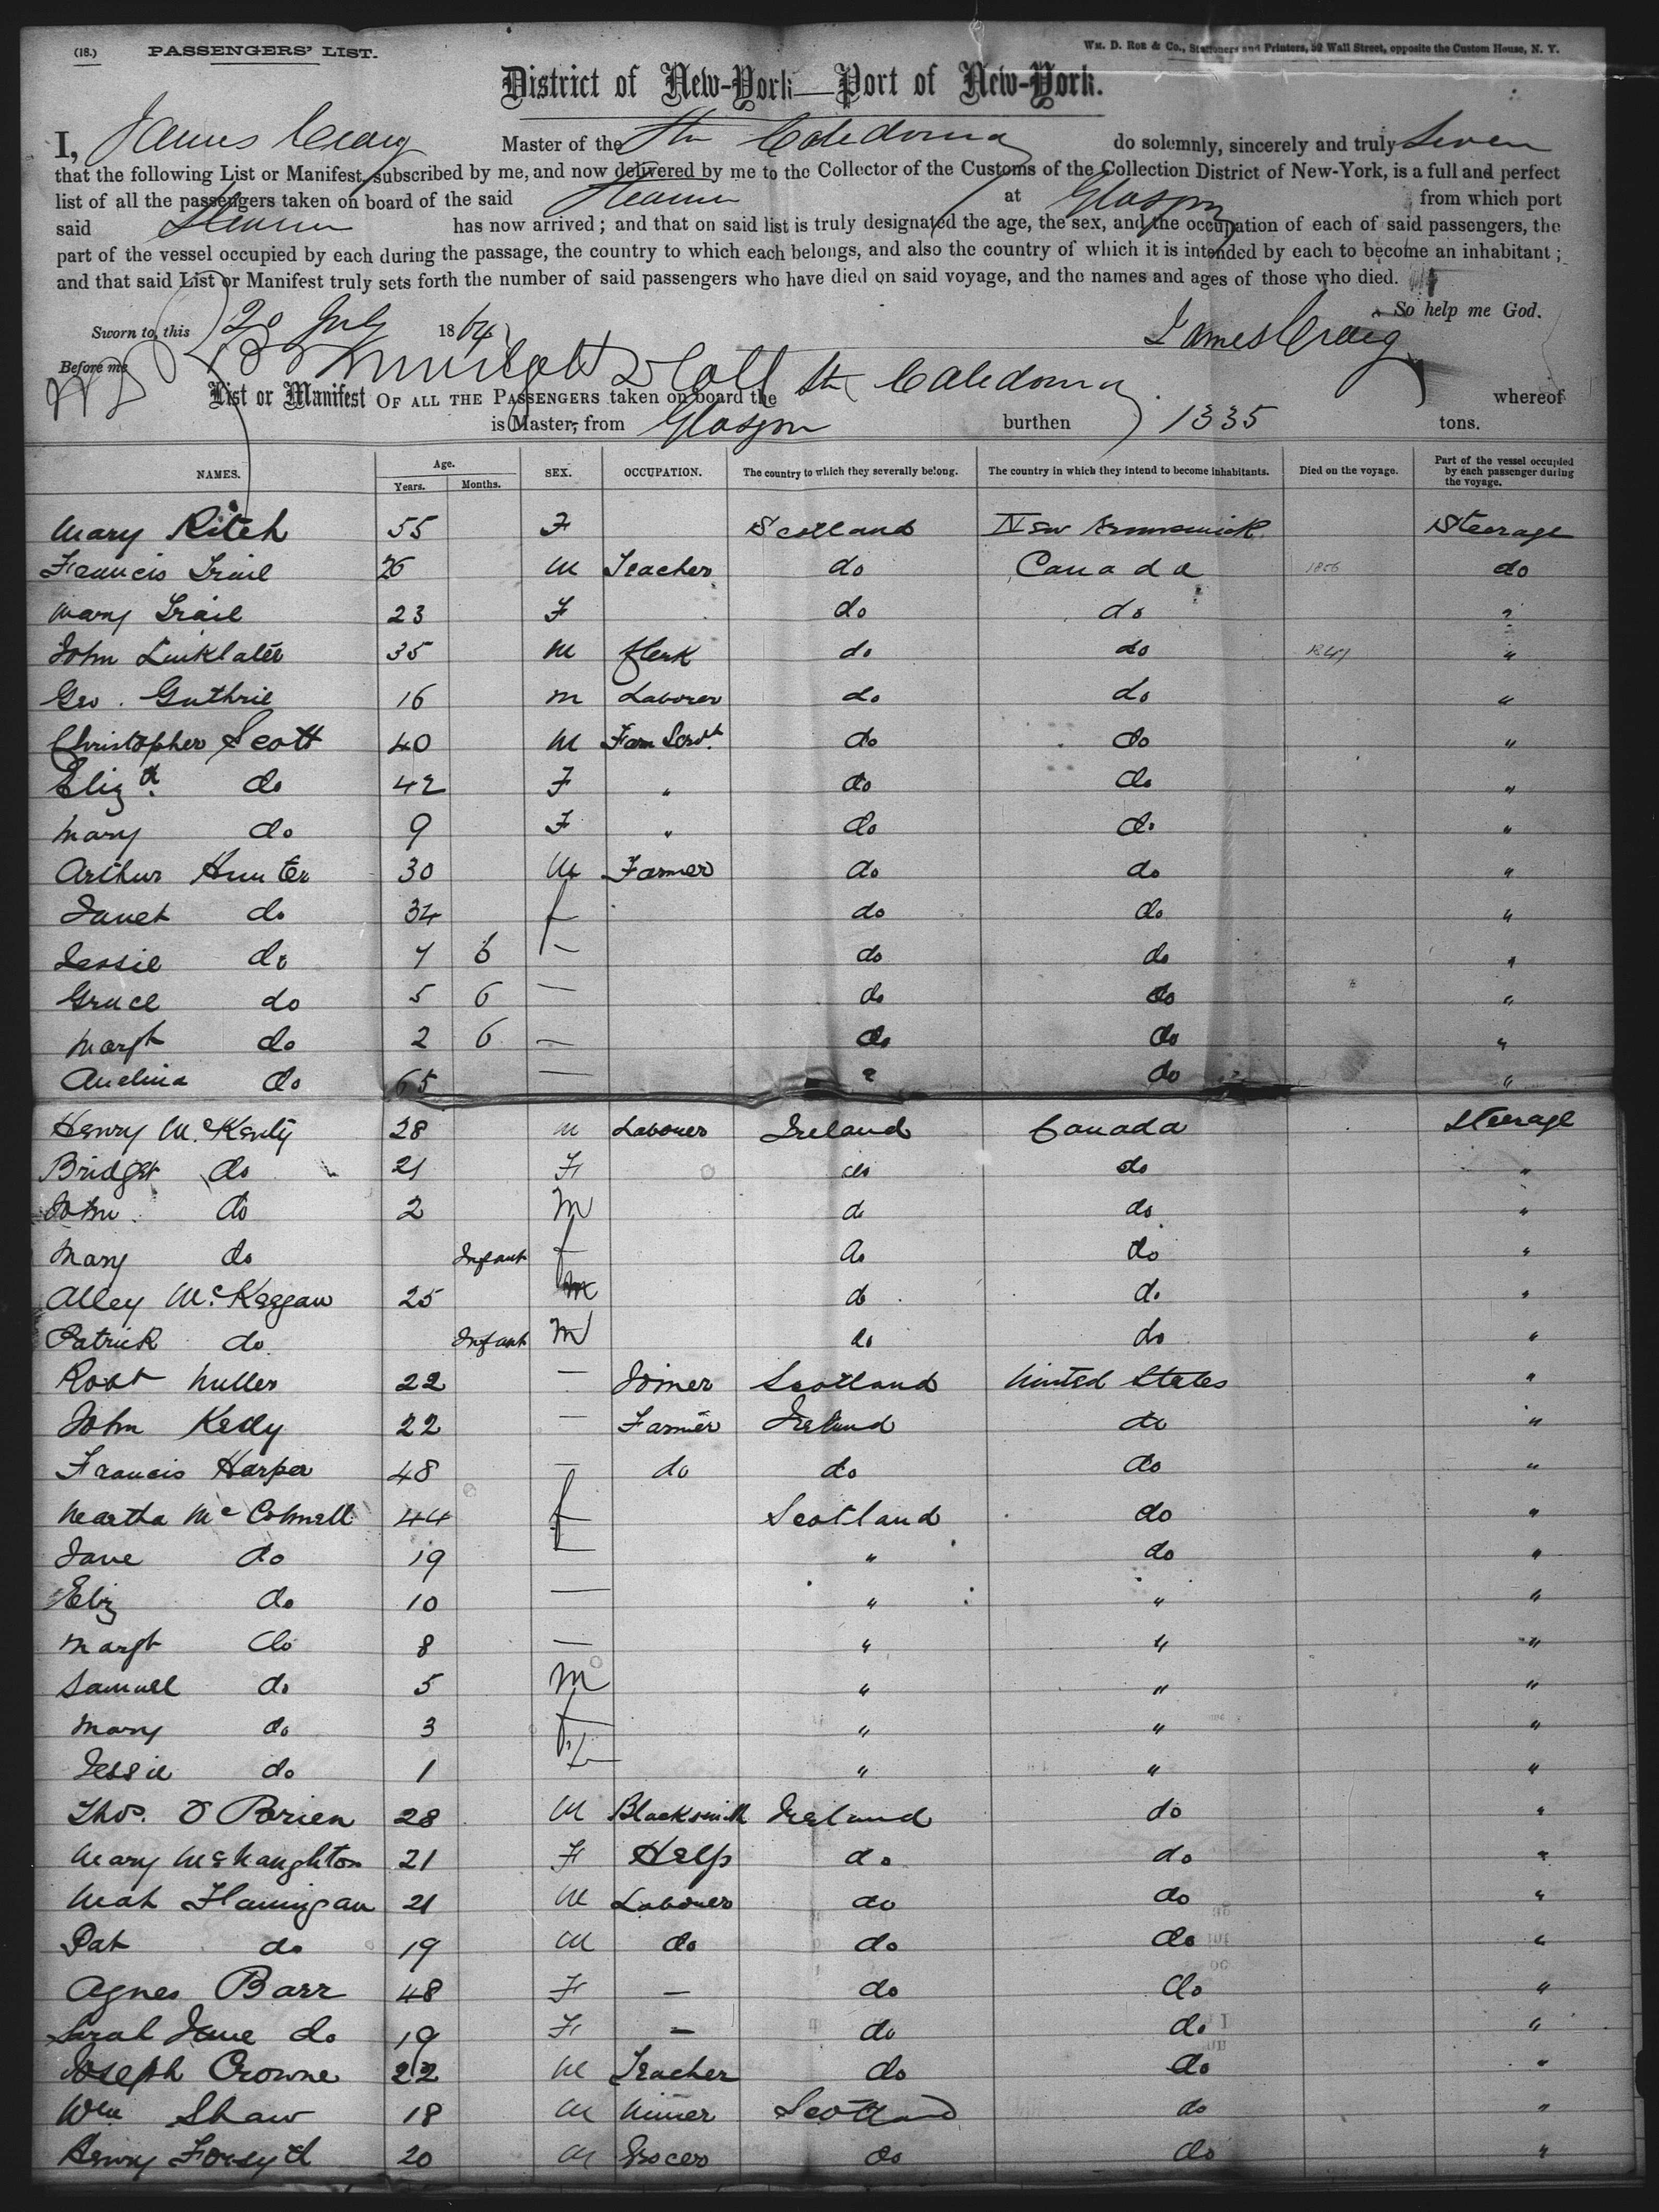 (18.) PASSENGERS' LIST.
WM. D. ROE & Co., Stationers and Printers, 52 Wall Street, opposite the Custom House, N. Y.
District of New-York—Port of New-York.
I, James Craig Master of the Str Caledonia do solemnly, sincerely and truly Swear
that the following List or Manifest, subscribed by me, and now delivered by me to the Collector of the Customs of the Collection District of New-York, is a full and perfect
list of all the passengers taken on board of the said Steamer at Glasgow from which port
said Steamer has now arrived; and that on said list is truly designated the age, the sex, and the occupation of each of said passengers, the
part of the vessel occupied by each during the passage, the country to which each belongs, and also the country of which it is intended by each to become an inhabitant;
and that said List or Manifest truly sets forth the number of said passengers who have died on said voyage, and the names and ages of those who died.
So help me God.
Sworn to, this 20 July 1864
James Craig
Before me
List or Manifest OF ALL THE PASSENGERS taken on board the Str Caledonia whereof
is Master, from Glasgow burthen 1335 tons.
NAMES. Age. Years. Months. SEX. OCCUPATION. The country to which they severally belong. The country in which they intend to become inhabitants. Died on the voyage. Part of the vessel occupied by each passenger during the voyage.
Mary Ritch 55 F Scotland New Brunswick Steerage
Francis Trail 26 M Teacher do Canada 1856 do
Mary Trail 23 F do do "
John Linklater 35 M Clerk do do 1847 "
Geo. Guthrie 16 M Laborer do do "
Christopher Scott 40 M Farm Servt. do do "
Elizth. do 42 F " do do "
Mary do 9 F " do do "
Arthur Hunter 30 M Farmer do do "
Janet do 34 f do do "
Jessie do 7 6 — do do "
Grace do 5 6 — do do "
Margt do 2 6 — do do "
do 65 — " do "
Henry McKenty 28 M Labourer Ireland Canada Steerage
Bridget do 21 F do do "
John do 2 M do do "
Mary do Infant f do do "
Alley McKeggan 25 do do "
Patrick do Infant M do do "
Robt Miller 22 — Joiner Scotland United States "
John Kelly 22 — Farmer Ireland do "
Francis Harper 48 — do do do "
Martha McConnell 44 f Scotland do "
Jane do 19 — " do "
Eliz do 10 — " " "
Margt do 8 — " " "
Samuel do 5 M " " "
Mary do 3 f " " "
Jessie do 1 " " "
Thos. O'Brien 28 M Blacksmith Ireland do "
Mary McNaughton 21 F Help do do "
Mat Flannigan 21 M Labourer do do "
Pat do 19 M do do do "
Agnes Barr 48 F — do do "
Sarah Jane do 19 F — do do "
Joseph Crowne 22 M Teacher do do "
Wm Shaw 18 M Miner Scotland do "
Henry Forsyth 20 M Grocer do do "